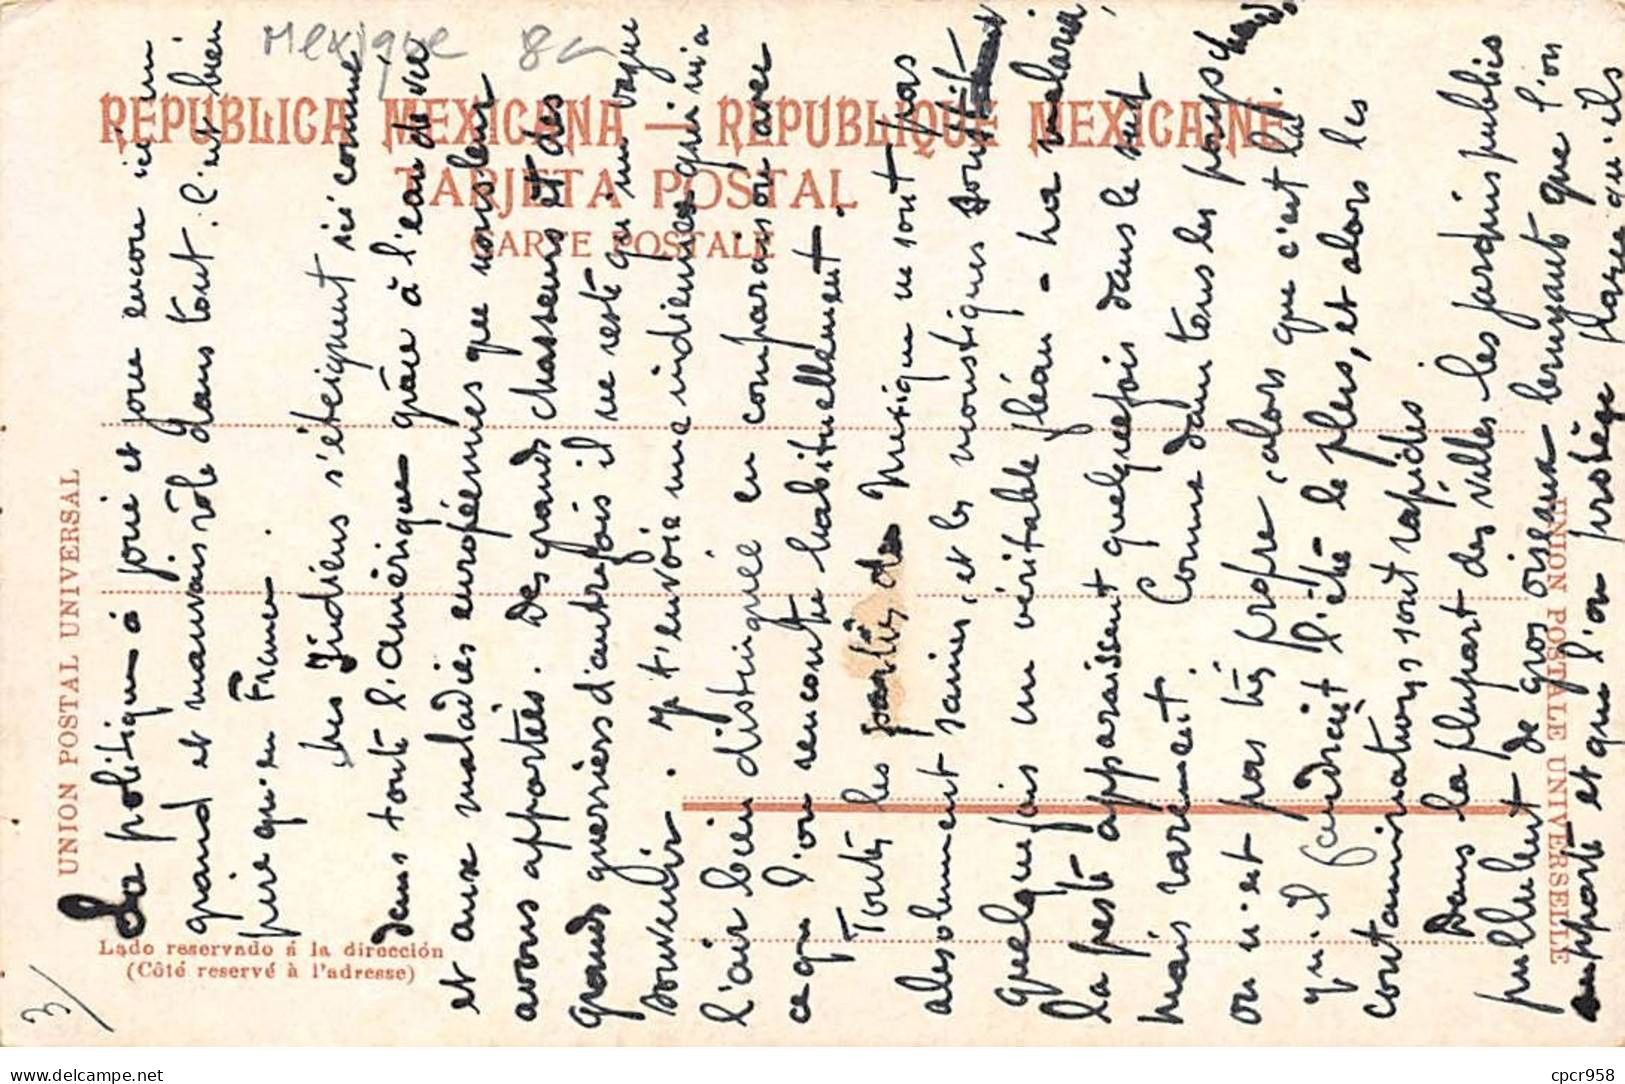 Mexique 8
REPUBLICA MEXICANA — REPUBLIQUE MEXICAINE
TARJETA POSTAL
CARTE POSTALE
UNION POSTAL UNIVERSAL
UNION POSTALE UNIVERSELLE
Lado reservado á la dirección
(Côté reservé à l'adresse)
3/
La politique a joué et joue encore ici un
grand et mauvais rôle dans tout. C'est bien
pire qu'en France.
Les Indiens s'éteignent ici comme
dans toute l'Amérique grâce à l'eau de vie
et aux maladies européennes que nous leur
avons apportées. Des grands chasseurs et des
grands guerriers d'autrefois il ne reste qu'un vague
souvenir. Je t'envoie une indienne qui a
l'air bien distinguée en comparaison avec
ce que l'on rencontre habituellement.
Toutes les parties du Mexique ne sont pas
absolument saines, et les moustiques sont
quelquefois un véritable fléau - la malaria,
la peste apparaissent quelquefois dans le sud
mais rarement. Comme dans tous les pays chauds,
on n'est pas très propre, alors que c'est là
qu'il faudrait l'être le plus, et alors les
contaminations sont rapides
Dans la plupart des villes les jardins publics
pullulent de gros oiseaux bruyants que l'on
supporte et que l'on protège parce qu'ils
cpcr958